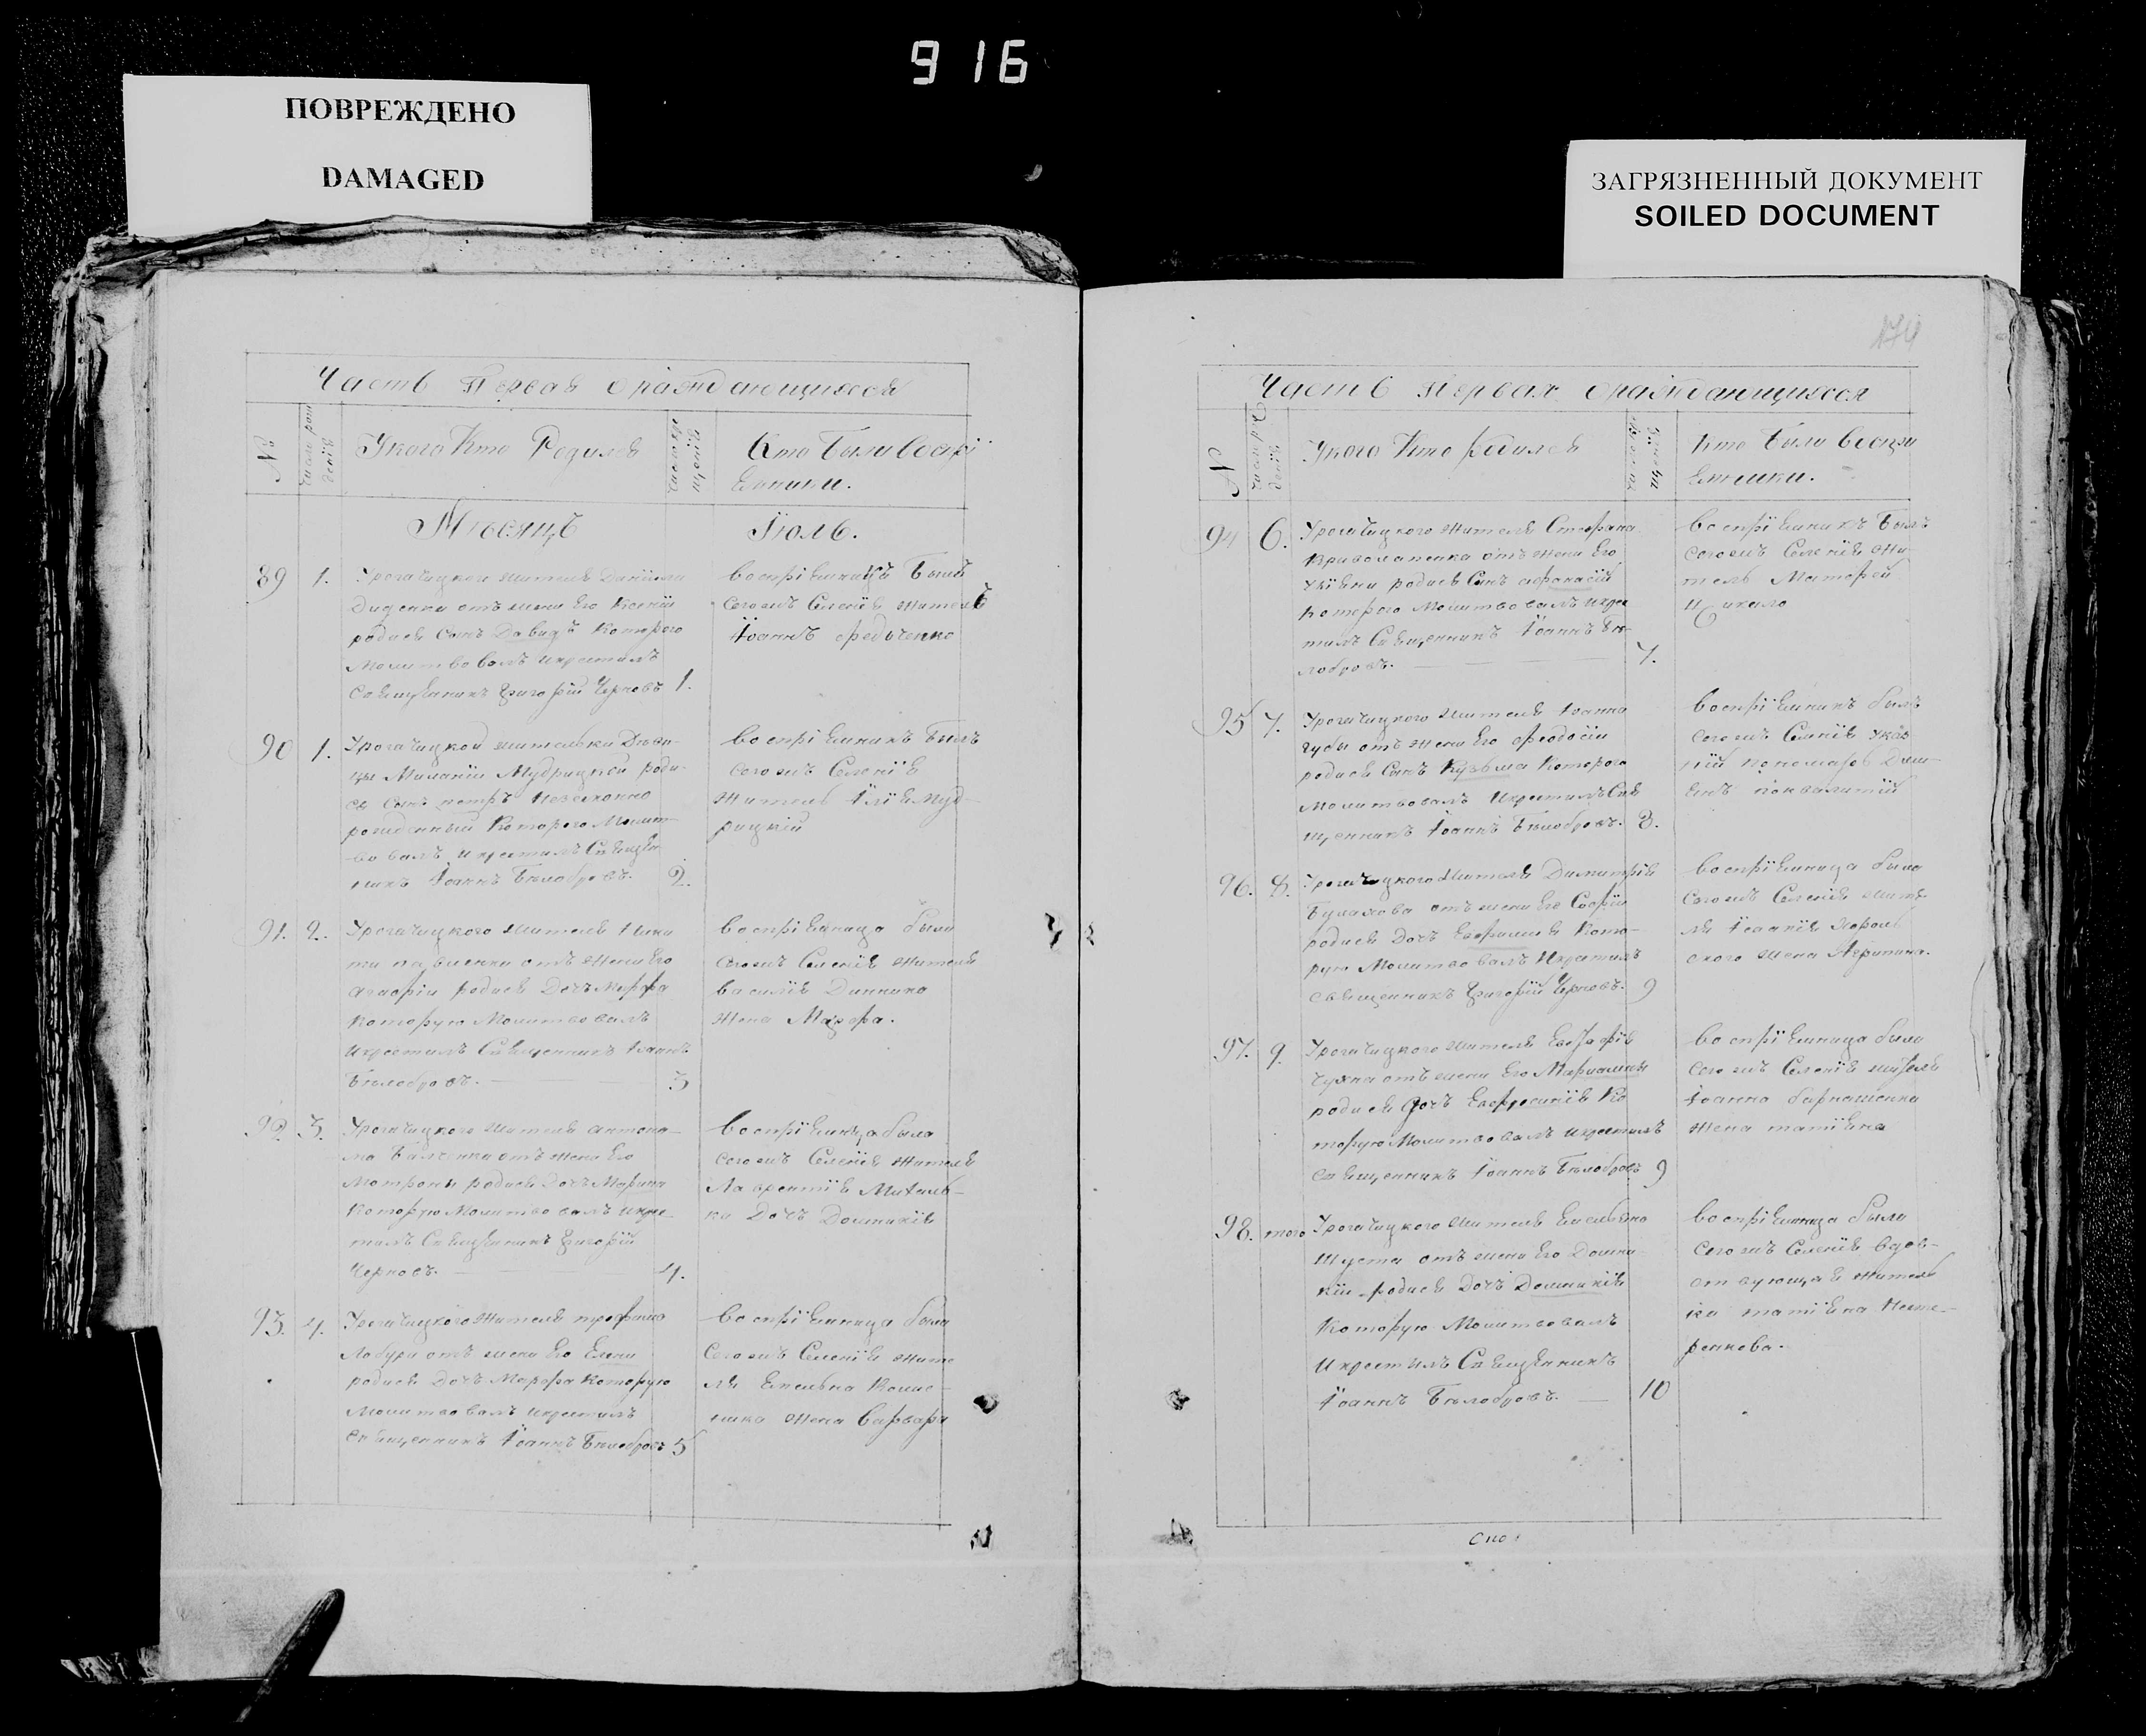 916
ПОВРЕЖДЕНО
DAMAGED
ЗАГРЯЗНЕННЫЙ ДОКУМЕНТ
SOILED DOCUMENT
174
Часть Первая о раждающихся
№
У кого Кто Родился
Кто Были Воспрі
Емники.
Мѣсяцъ Іюль.
89 1. Урогачицкого жителя Даніила
Диденки отъ жены Его Ксеніи
родися Сынъ Давидъ Которого
Молитвовалъ икрестилъ
Священникъ Григорій Черновъ 1.
Воспріемникъ Былъ
Сегожъ Селенія житель
Іоаннъ Федченко
90 1. Урогачицкой жительки Дѣви-
цы Маланіи Мудрицкой роди-
ся Сынъ петръ Незаконно
рожденный Которого Молит-
вовалъ икрестилъ Священ
никъ Іоаннъ Бѣлобровъ. 2.
Воспріемникъ Былъ
Сегожъ Селенія
Житель Илія Муд-
рицкій
91. 2. Урогачицкого жителя Ники
ты отъ жены Его
Агафіи родися Дочъ Марфа
Которую Молитвовалъ
икрестилъ Священникъ Іоаннъ
Бѣлобровъ. 3
Воспріемница была
Сегожъ Селенія жителя
Василія Данника
жена Марфа.
92. 3. Урогачицкого жителя Антона
отъ жены Его
Матроны родися Дочъ Марина
Которую Молитвовалъ икре-
тилъ Священникъ Григорій
Черновъ. 4.
Воспріемница была
Сегожъ Селенія жителя
Лаврентія Михаль-
ка Дочъ Домникія
93. 4. Урогачицкого жителя трофима
Лабури отъ жены Его Елены
родися Дочъ Марфа Которую
Молитвовалъ икрестилъ
Священникъ Іоаннъ Бѣлобровъ 5
Воспріемница была
Сегожъ Селенія жите
ля Емельяна
жена Варвара
Часть Первая о раждающихся
№
У кого Кто родился
Кто Были Воспри
Емники.
94 6. Урогачицкого жителя Стефана
Кривопапенка отъ жены Его
родися Сынъ Афанасій
Которого Молитвовалъ икрес
тилъ Священникъ Іоаннъ Бѣ-
лобровъ. 7.
Воспріемникъ Былъ
Сегожъ Селенія жи
тель Матфей
Цикало
95 7. Урогачицкого жителя Іоанна
Губы отъ жены Его Феодосіи
родися Сынъ Кузьма Которого
Молитвовалъ икрестилъ Свя
щенникъ Іоаннъ Бѣлобровъ. 8.
Воспріемникъ былъ
Сегожъ Селенія
пономаръ
96. 8. Урогачицкого жителя Димитрія
Булахова отъ жены Его Софіи
родися Дочъ Евфимія Кото-
рую Молитвовалъ икрестилъ
Священникъ Григорій Черновъ. 9
Воспріемница была
Сегожъ Селенія жите
ля Іоаннія
жена Агрипина.
97. 9. Урогачицкого жителя
Чухна отъ жены Его Маріамны
родися Дочъ Евфросинія Ко
торую Молитвовалъ икрестилъ
Священникъ Іоаннъ Бѣлобровъ 9
Воспріемница была
Сегожъ Селенія жителя
Іоанна Барнашенка
жена татіяна
98. того Урогачицкого жителя Емельяна
Шуста отъ жены Его Домни-
кіи родися Дочъ Домникія
Которую Молитвовалъ
Икрестилъ Священникъ
Іоаннъ Бѣлобровъ. 10
Воспріемница была
Сегожъ Селенія вдов-
ствующая житель
ка татіяна Несте-
ренкова.